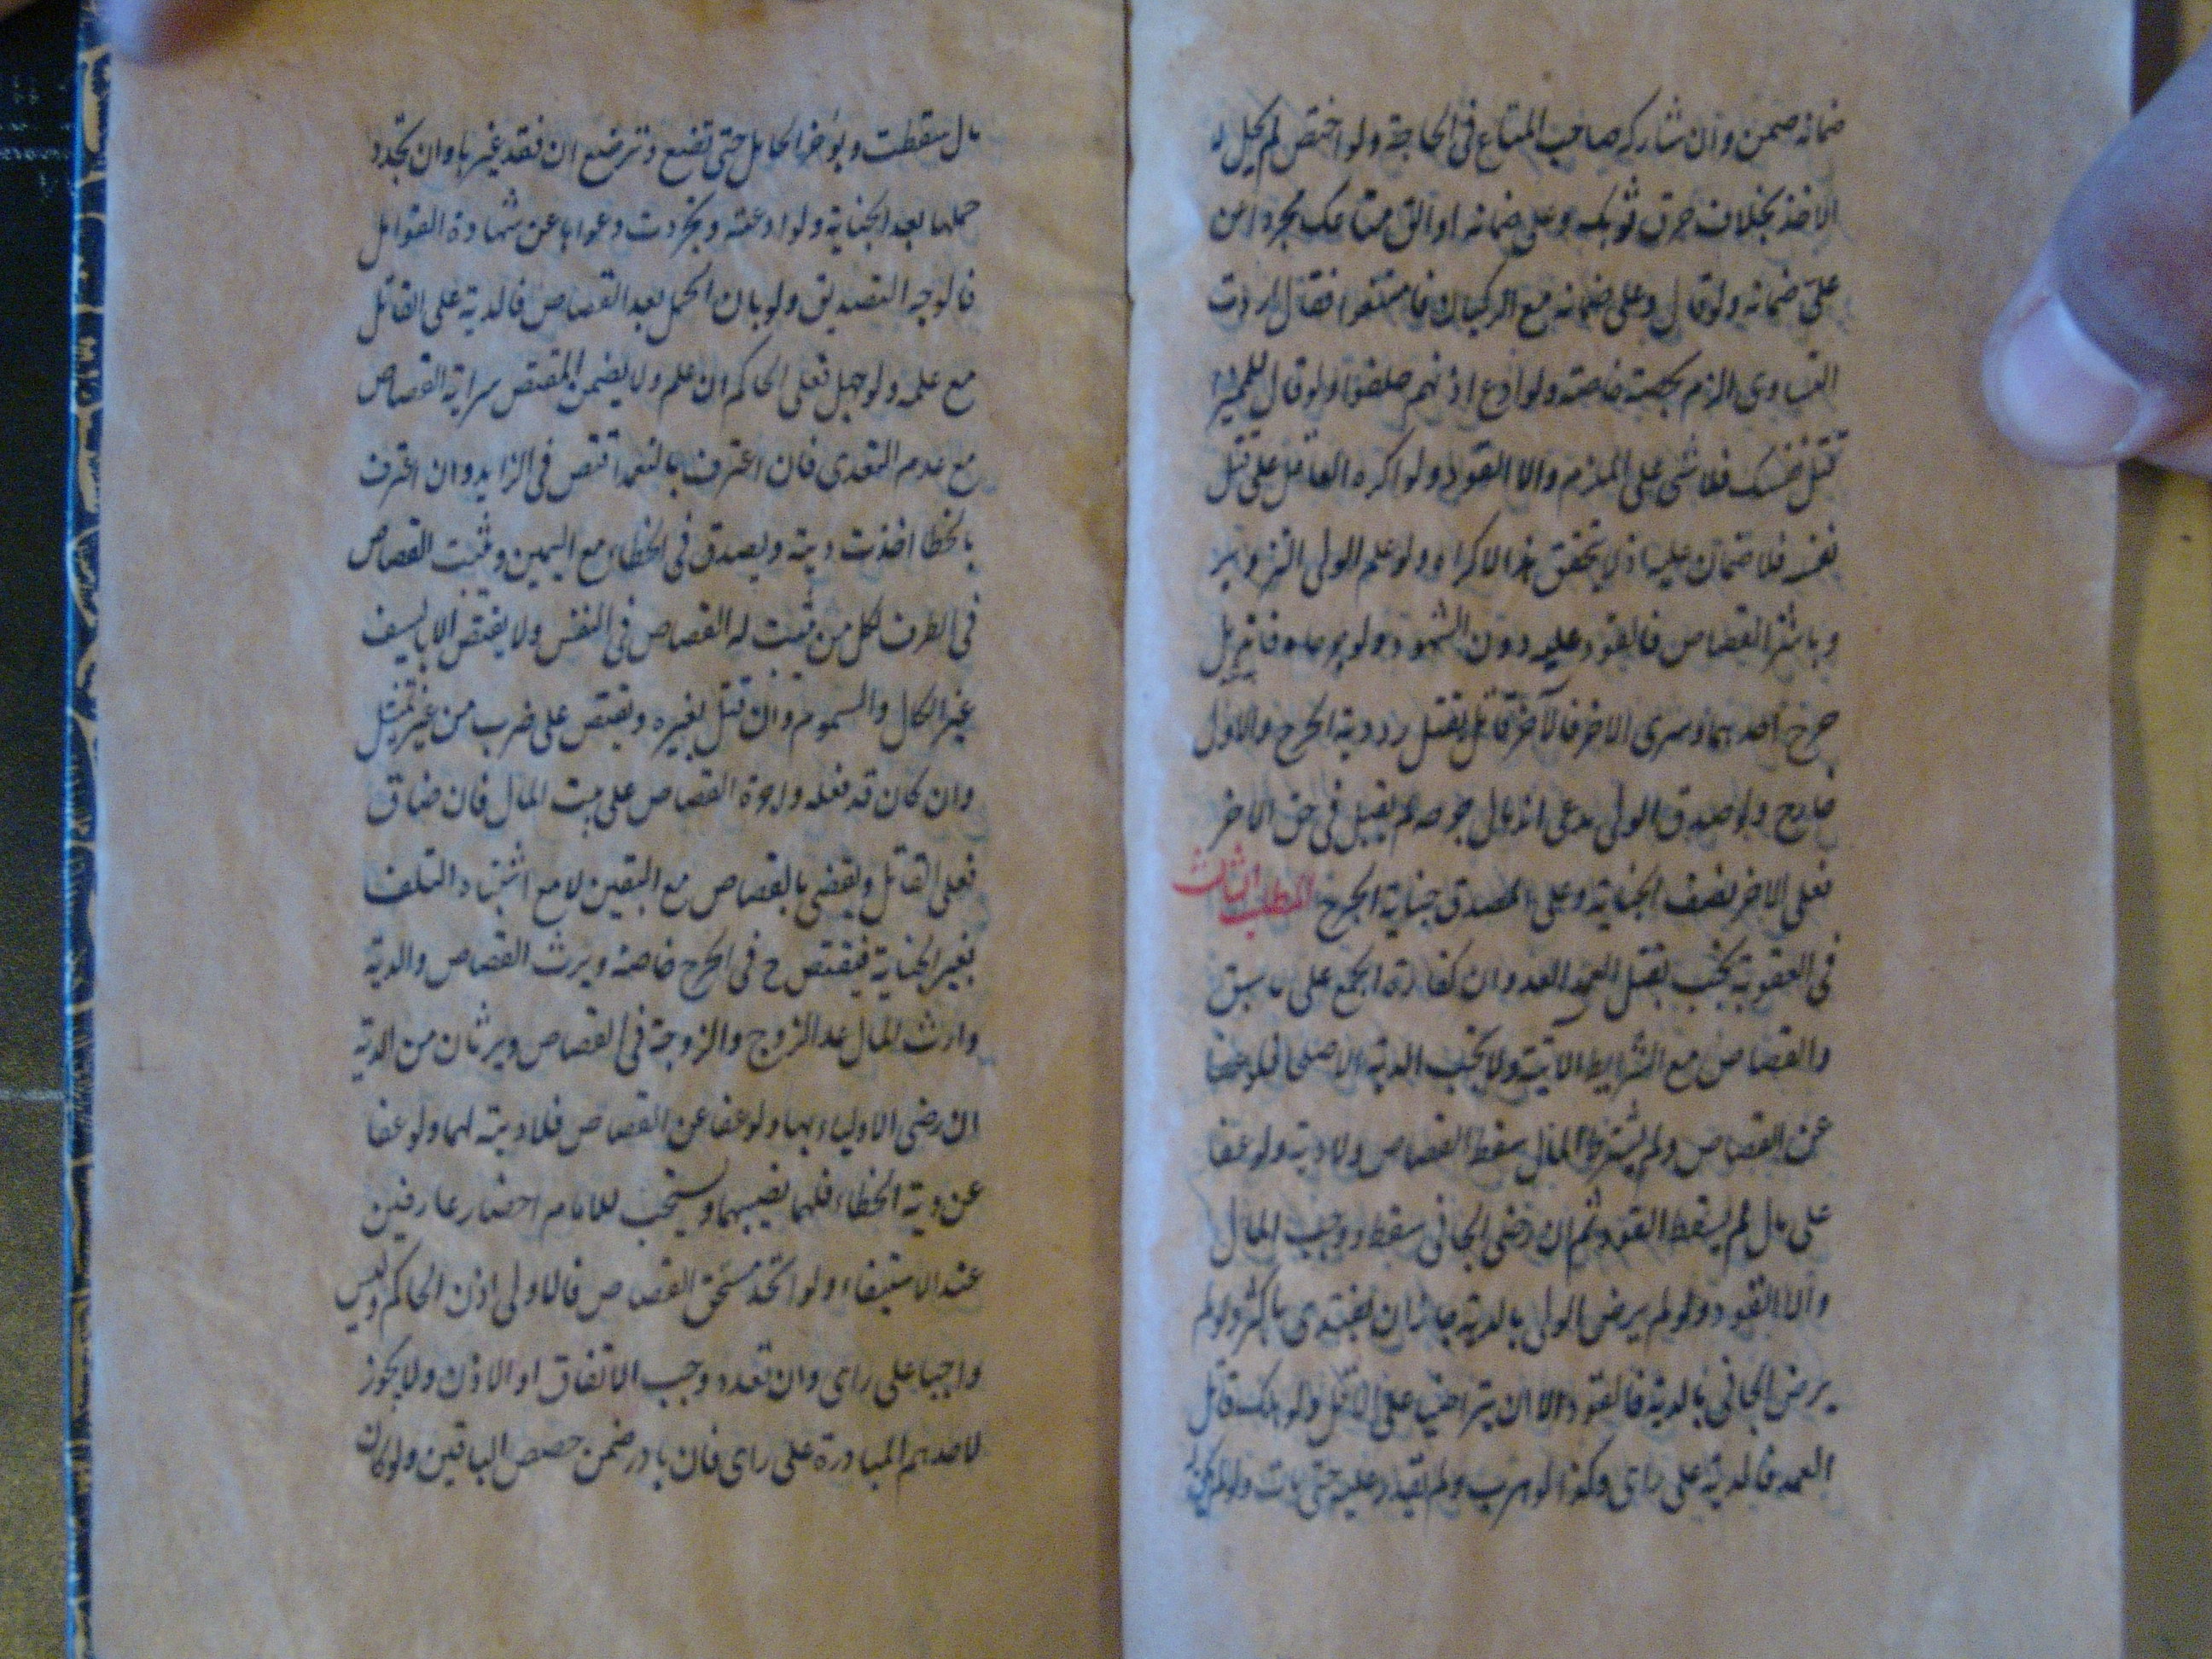 ضمانه ضمن وان شاركه صاحب المتاع فى الحاجة ولو اختص لم يحل له
الاخذ بخلاف خرق ثوبك وعلى ضمانه او الق متاعك مجردا من
علىّ ضمانه ولو قال وعلى ضمانه مع الركبان فامتنعوا فقال اردت
التساوى الزم بحصته خاصته ولو ادع اذنهم حلفوا ولو قال للمميز
تقتل نفسك فلا شى على الملزم والا القود ولو اكره العاقل على قتل
نفسه فلا ضمان عليه اذ لا يتحقق هذا الاكراه ولو علم الولى التزوير
وباشر القصاص فالقود عليه دون الشهود ولو جرحاه فاندمل
جرح احدهما وسرى الاخر فالآخر قاتل يقتل برد دية الجرح والاول
جارح ولو صدق الولى مدعى اندمال جرحه لم يقبل فى حق الاخر
فعلى الاخر نصف الجناية وعلى المصدق جناية الجرح المطلب الثالث
فى العقوبة يجب بقتل العمد العدوان كفارة الجمع على ما سبق
والقصاص مع الشرايط الاتية ولا يجب الدية الا صلحا فلو عفا
عن القصاص ولم يشترط المال سقط القصاص ولا دية ولو عفا
على مال لم يسقط القود ثم ان رضى الجانى سقط ووجب المال
والا القود ولو لم يرض الولى بالدية جاز ان يفتدى باكثر ولو لم
يرض الجانى بالدية فالقود الا ان يتراضيا على الاقل ولو هلك قاتل
العمد فالدية على راى وكذا لو هرب ولم يقدر عليه حتى مات ولو لم يكن له
مال سقطت ويوخر الحامل حتى تضع وترضع ان فقد غيرها وان تجدد
حملها بعد الجناية ولو ادعته وتجردت دعواها عن شهادة القوابل
فالوجه التصديق ولو بان الحمل بعد القصاص فالدية على القاتل
مع علمه ولو جهل فعلى الحاكم ان علم ولا يضمن المقتص سراية القصاص
مع عدم التعدى فان اعترف بالتعمد اقتص فى الزايد وان اعترف
بالخطا اخذت دية ويصدق فى الخطاء مع اليمين وثبت القصاص
فى الطرف لكل من ثبت له القصاص فى النفس ولا يقتص الا بالسيف
غير الكال والمسموم وان قتل بغيره ويقتص على ضرب من غير تمثيل
وان كان قد فعله واجرة القصاص على بيت المال فان ضاق
فعلى القاتل ويقضى بالقصاص مع اليقين لا مع اشتباه التلف
بغير الجناية فيقتص ح فى الجرح خاصة ويرث القصاص والدية
وارث المال عدا الزوج والزوجة فى القصاص ويرثان من الدية
ان رضى الاولياء بها ولو عفا عن القصاص فلا دية لهما ولو عفا
عن دية الخطاء فلهما نصيبهما ويستحب للامام احضار عارفين
عند الاستيفاء ولو اتحد مستحق القصاص فالاولى اذن الحاكم وليس
واجبا على راى وان تعدد وجب الاتفاق او الاذن ولا يجوز
لاحدهم المبادرة على راى فان بادر ضمن حصص الباقين ولو كان